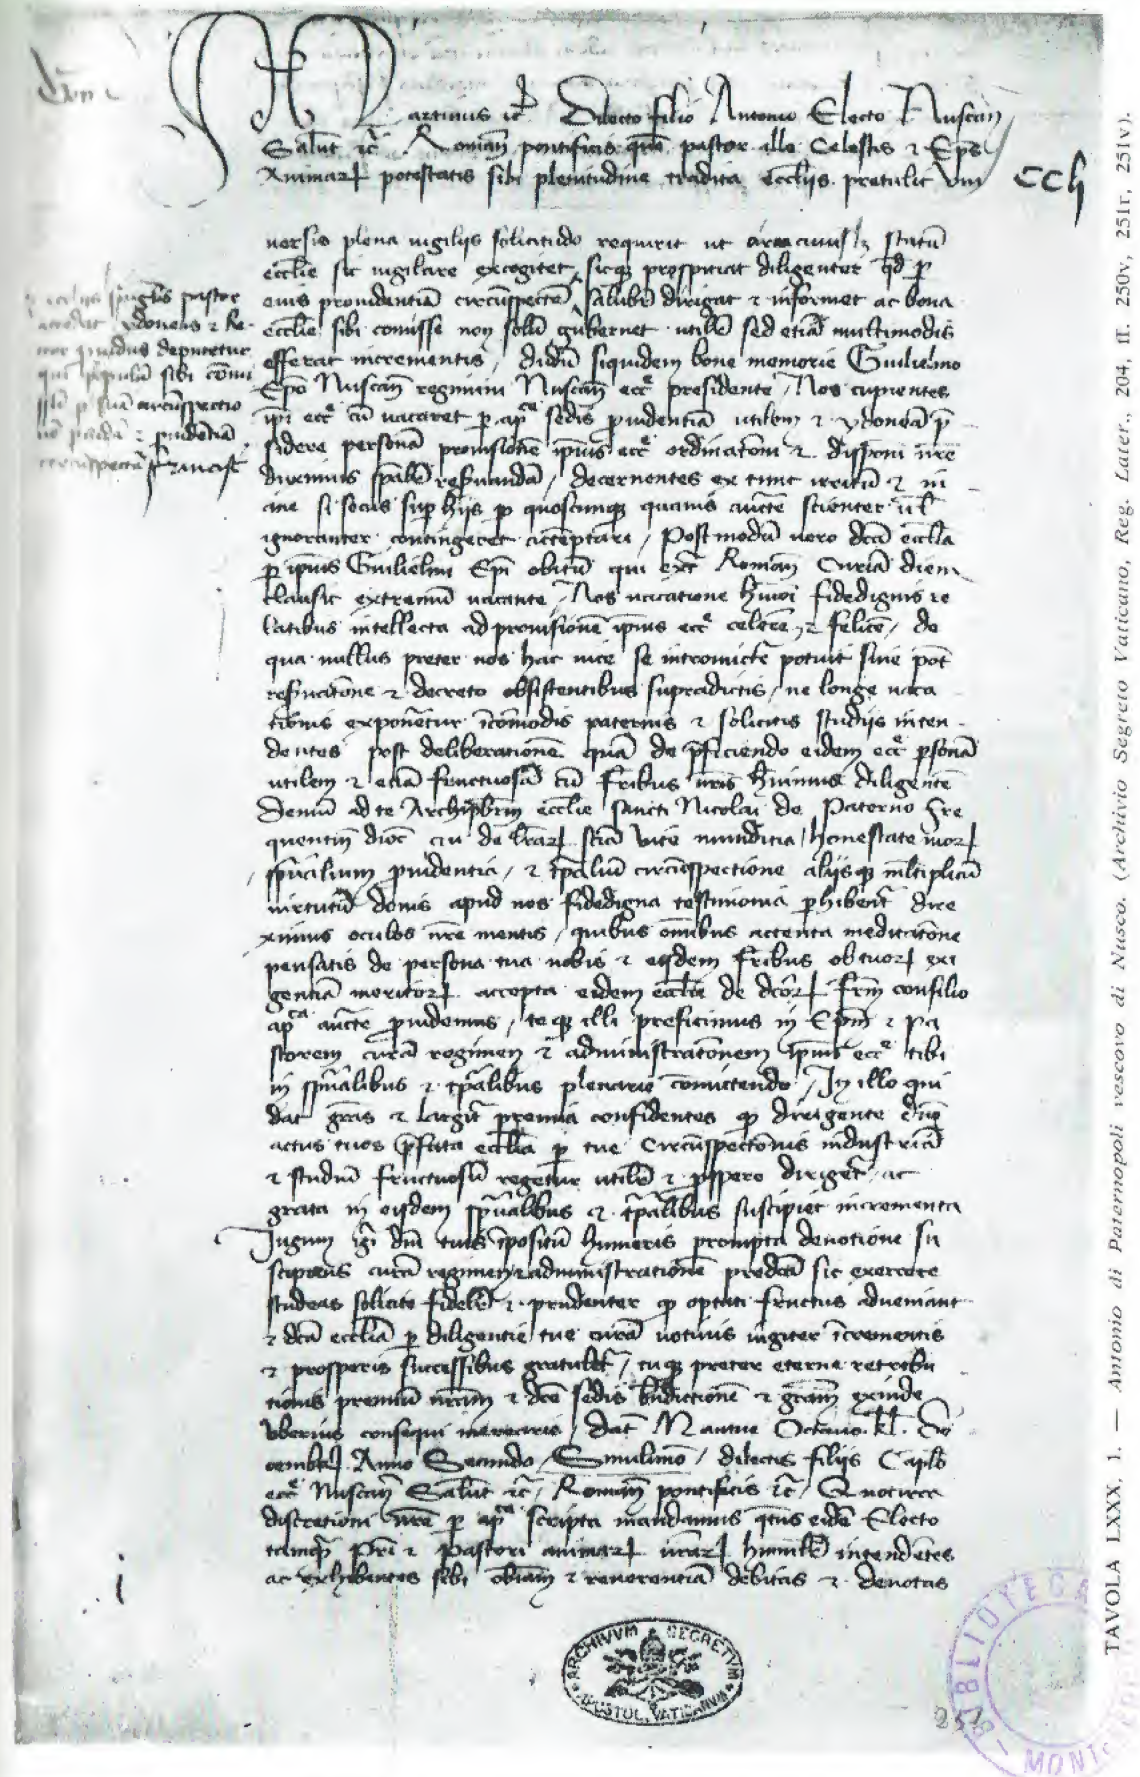 Martinus etc̃ Dilecto filio Antonio Electo Nuscan̄
Salut̄ etc̃ Roman̄ pontificis quē pastor ille Celestis et Ep̄s
Animarꝝ potestatis sibi plenitudine tradita eccl̄iis pretulit vni
cch
uersis plena uigiliis solicitudo requirit ut circa cuiusꝫ statū
eccl̄ie sic uigilare excogitet sicqꝫ prospiciat diligenter qd̄ ꝑ
eius prouidentiā circūspectā salubrē dirigat et informet ac bona
eccl̄ie sibi comisse non solū gubernet utilit̄ sed etiā multimodis
efferat incrementis / dudū siquidem bone memorie Guilielmo
Ep̄o Nuscan̄ regimini Nuscan̄ ecc̄ presidente / Nos cupientes
ip̄i ecc̄ cū uacaret ꝑ ap̄ce sedis ꝓuidentiā utilem et ydoneā p̄
sidere personā prouisionē ip̄ius ecc̄ ordinatōni et disponi n̄re
duximus sp̄alit̄ res̄uandā / decernentes ex tunc irritū et in
ane si secus sup hiis ꝑ quoscunqꝫ quauis auct̄e scienter ul̄
ignoranter contingeret attēptari / Postmodū uero dc̄a eccl̄ia
ꝑ ip̄ius Guilielmi Ep̄i obitū qui extr̄ Roman̄ Curiā diem
clausit extremū uacante / Nos uacatione hmōi fidedignis re
latibus intellecta ad prouisionē ip̄ius ecc̄ celerē et felicē / de
qua nullus preter nos hac uice se intromictē potuit siue pōt
res̄uatōne et decreto obsistentibus supradictis / ne longe uaca
tionis exponēetur īcōmodis paternis et solicitis studiis inten
dentes post deliberationē quā de p̄ficiendo eidem ecc̄ ꝑsonā
utilem et etiā fructuosā cū fr̄ibus nr̄is hūimus diligentē
Demū ad te Archipb̄rm eccl̄ie sancti Nicolai de Paterno Fre
quentin̄ dioc̄ cui de lr̄arꝝ sciā uite munditia / honestate morꝝ
sp̄ualium ꝓuidentia / et tp̄aliū circūspectione aliisqꝫ ml̄tiplicū
uirtutū donis apud nos fidedigna testimonia ꝑhibent̄ dire
ximus oculos n̄re mentis / quibus om̄ibus attenta meditatōne
pensatis de persona tua nobis et eisdem fr̄ibus ob tuorꝝ exi
gentiā meritorꝝ accepta eidem eccl̄ie de dc̄orꝝ fr̄m consilio
ap̄ca auct̄e ꝓuidemus / teqꝫ illi preficimus in Ep̄m et Pa
storem curā regimen et administratōnem ip̄ius ecc̄ tibi
in sp̄ualibus et tp̄alibus plenarie cōmictendo / In illo qui
dat gr̄as et largit̄ premia confidentes qꝫ dirigente dn̄o
actus tuos p̄fata eccl̄ia ꝑ tue Circūspectōnis industriā
et studiū fructuosū regetur utilit̄ et ꝓspere dirigēt̄ ac
grata in eisdem sp̄ualibus et tp̄alibus suscipiet incrementa
Iugum igr̄ dn̄i tuis īpositū humeris prompta deuotione su
scipiens curā regimen et administrationē predcā sic exercere
studeas solicite fidelit̄ et prudenter qꝫ optati fructus adueniant
et dcā eccl̄ia ꝑ diligentie tue curā uotiuis iugiter īcrementis
et prosperis successibus gratulet̄ / tuqꝫ preter eterne retribu
tionis premiū nr̄am et dc̄e sedis bn̄dictionē et gr̄am exinde
vberius consequi merearis / dat̄ Mantue Octauo kl̄. De
cembrꝝ Anno Secundo / Simulimō / dilectis filiis Cap̄lo
ecc̄ Nuscan̄ Salut̄ etc̃ / Roman̄ pontificis etc̃ / Quocirca
discretioni ur̄e ꝑ ap̄ca scripta mandamus q̄tus eidē Electo
tamqꝫ Pr̄i et pastori animarꝝ ur̄arꝝ humil̄r intendētes
ac exhibentes sibi obīam et reuerentiā debitas et deuotas
pastor
ydoneus et
deputetur
populū sibi
ꝑ suā circūspectio
et ꝓuidentiā
Francisc̄
ARCHIVVM SECRETVM
APOSTOL. VATICANVM
BIBLIOTECA
MONT
TAVOLA LXXX, 1. — Antonio di Paternopoli vescovo di Nusco. (Archivio Segreto Vaticano, Reg. Later., 204, ff. 250v, 251r, 251v).